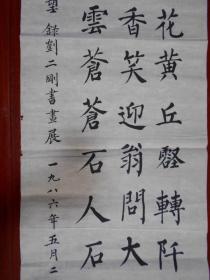 花黄丘壑轉阡
香笑迎翁問大
雲蒼蒼石人石
望 録劉二剛書畫展 一九八六年五月二